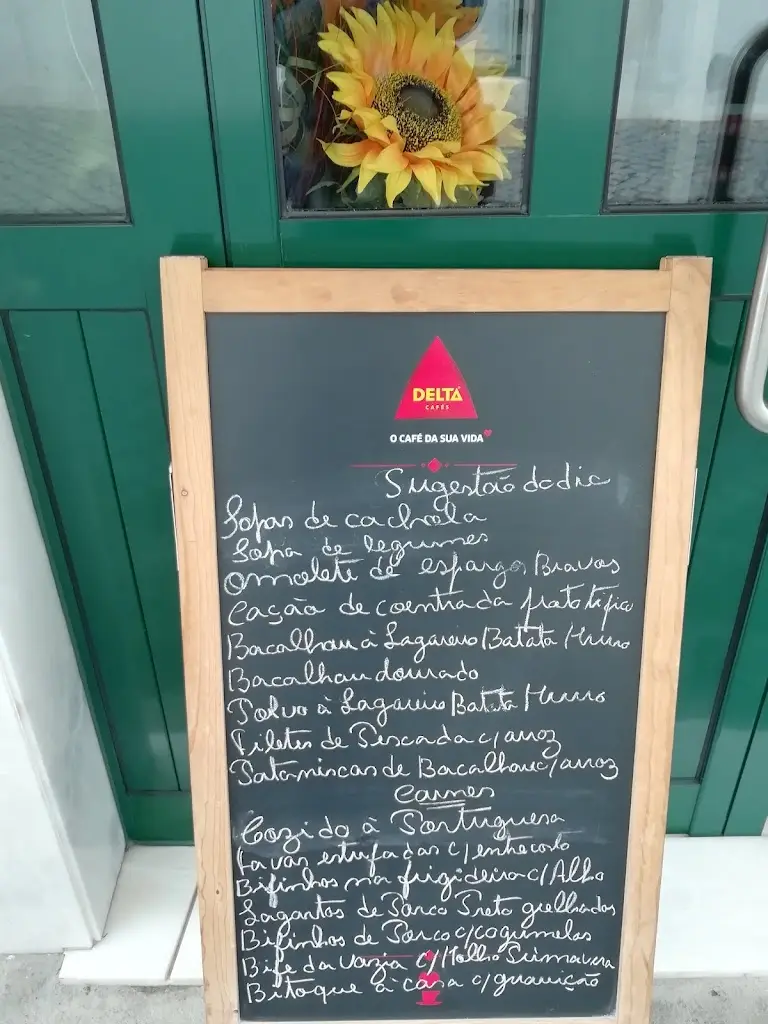 DELTA
CAFÉS
O CAFÉ DA SUA VIDA
Sugestão do dia
Sopas de cachola
Sopa de legumes
Omolete de espargos Bravos
Cação de coentrada prato tipico
Bacalhau à Lagareiro Batata Murro
Bacalhau dourado
Polvo à Lagareiro Batata Murro
Filetes de Pescada c/ arroz
Pataniscas de Bacalhau c/ arroz
Carnes
Cozido à Portuguesa
Favas estufadas c/ entrecosto
Bifinhos na frigideira c/ Alho
Lagartos de Porco Preto grelhados
Bifinhos de Porco c/ cogumelos
Bife da Vazia c/ Molho Primavera
Bitoque à casa c/ guarnição